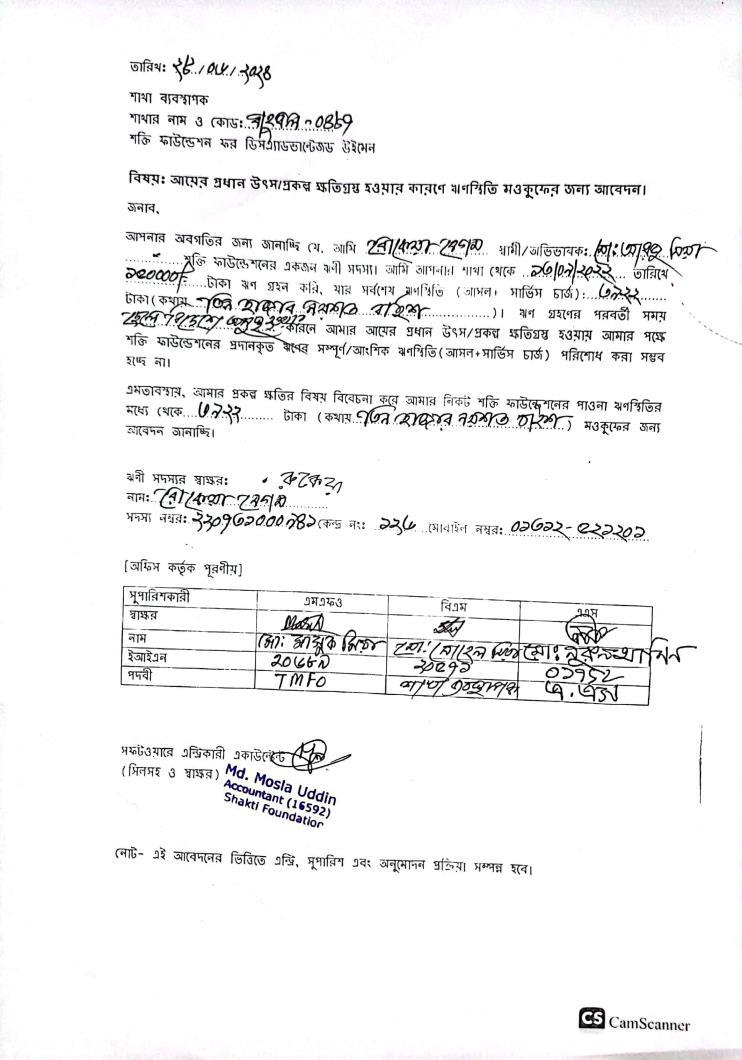 তারিখ: ২৮/০৮/২০২৪
শাখা ব্যবস্থাপক
শাখার নাম ও কোড: - 0469
শক্তি ফাউন্ডেশন ফর ডিসএ্যাডভান্টেজড উইমেন
বিষয়: আয়ের প্রধান উৎস/প্রকল্প ক্ষতিগ্রস্থ হওয়ার কারণে ঋণস্থিতি মওকুফের জন্য আবেদন।
জনাব,
আপনার অবগতির জন্য জানাচ্ছি যে, আমি রোকেয়া বেগম স্বামী/অভিভাবক: মিয়া
শক্তি ফাউন্ডেশনের একজন ঋণী সদস্য। আমি আপনার শাখা থেকে তারিখে
টাকা ঋণ গ্রহন করি, যার সর্বশেষ ঋণস্থিতি (আসল+ সার্ভিস চার্জ): ৩৯২২
টাকা (কথায় তিন হাজার নয়শত বাইশ )। ঋণ গ্রহণের পরবর্তী সময়
কারনে আমার আয়ের প্রধান উৎস/প্রকল্প ক্ষতিগ্রস্থ হওয়ায় আমার পক্ষে
শক্তি ফাউন্ডেশনের প্রদানকৃত ঋণের সম্পূর্ণ/আংশিক ঋণস্থিতি (আসল+সার্ভিস চার্জ) পরিশোধ করা সম্ভব
হচ্ছে না।
এমতাবস্থায়, আমার প্রকল্প ক্ষতির বিষয় বিবেচনা করে আমার নিকট শক্তি ফাউন্ডেশনের পাওনা ঋণস্থিতির
মধ্যে থেকে ৩৯২২ টাকা (কথায় তিন হাজার নয়শত বাইশ ) মওকুফের জন্য
আবেদন জানাচ্ছি।
ঋণী সদস্যর স্বাক্ষর: রুকেয়া
নাম: রোকেয়া বেগম
সদস্য নম্বর: কেন্দ্র নং: মোবাইল নম্বর:
[অফিস কর্তৃক পূরণীয়]
সুপারিশকারী এমএফও বিএম এএম
স্বাক্ষর
নাম মো: মাসুক মিয়া মো: সোহেল মিয়া মো: নুরুল আমিন
ইআইএন
পদবী TMFO শাখা ব্যবস্থাপক এ.এম
সফটওয়ারে এন্ট্রিকারী একাউন্টেন্ট
(সিলসহ ও স্বাক্ষর)
Md. Mosla Uddin
Accountant (16592)
Shakti Foundation
নোট- এই আবেদনের ভিত্তিতে এন্ট্রি, সুপারিশ এবং অনুমোদন প্রক্রিয়া সম্পন্ন হবে।
CS CamScanner